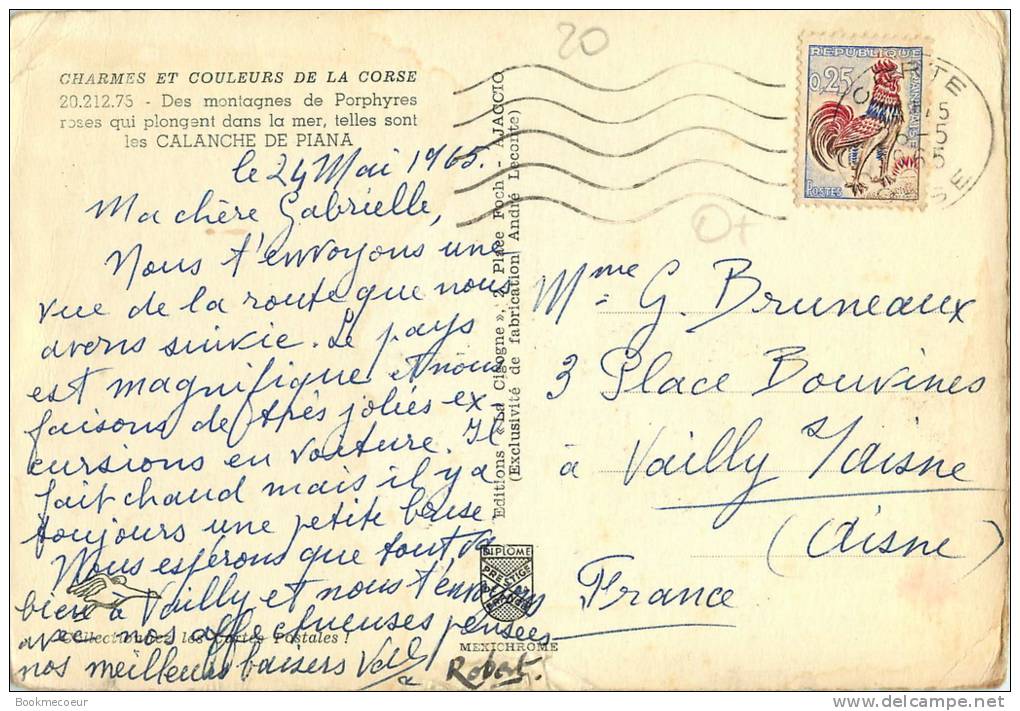 CHARMES ET COULEURS DE LA CORSE
20.212.75 - Des montagnes de Porphyres
roses qui plongent dans la mer, telles sont
les CALANCHE DE PIANA
le 24 Mai 1965.
Ma chère Gabrielle,
Nous t'envoyons une
vue de la route que nous
avons suivie. Le pays
est magnifique et nous
faisons de très jolies ex-
cursions en voiture. Il
fait chaud mais il y a
toujours une petite brise
Nous espérons que tout va
bien à Vailly et nous t'envoyons
avec nos affectueuses pensées
nos meilleurs baisers
Robert.
Collectionnez les Cartes Postales !
Editions « La Cigogne », 2 Place Foch - AJACCIO
(Exclusivité de fabrication André Leconte)
DIPLOME
PRESTIGE
DE LA
FRANCE
MEXICHROME
20
REPUBLIQUE
FRANÇAISE
0,25
POSTES
CORTE
CORSE
O+
Mme G. Bruneaux
3 Place Bouvines
à Vailly s/aisne
(Aisne)
France
Bookmecoeur
delcampe.net